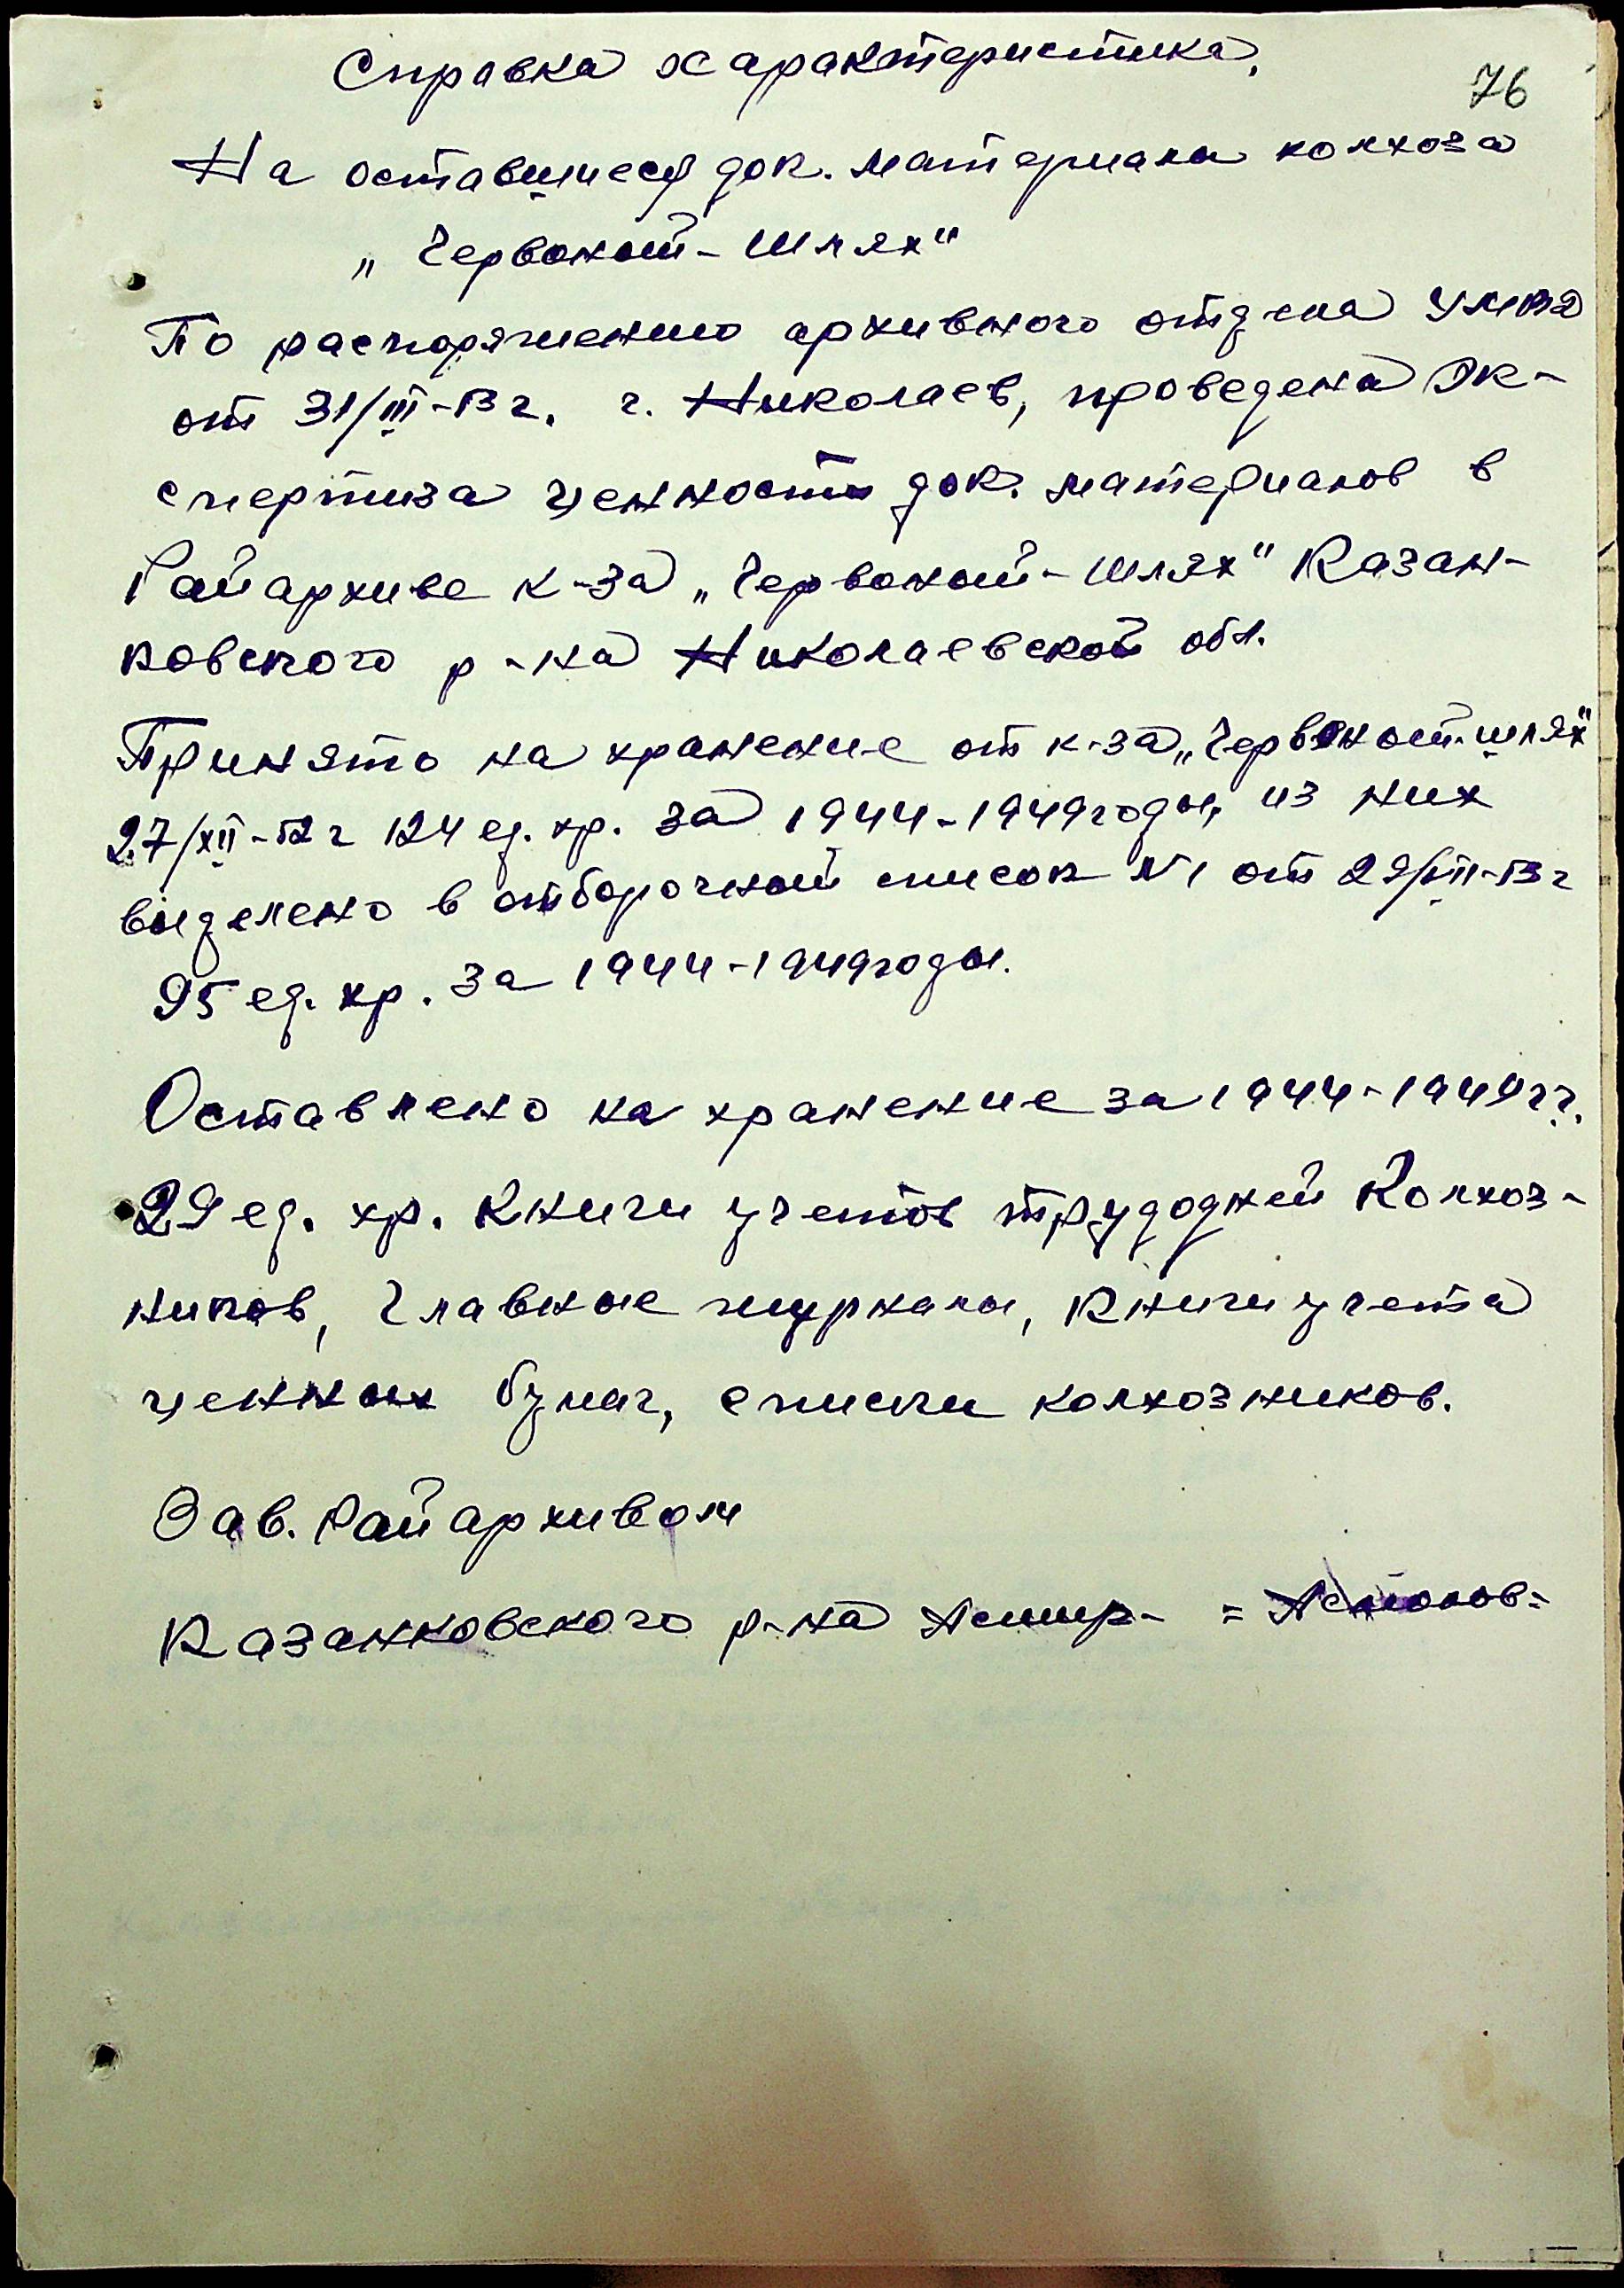 Справка характеристика.
76
На оставшиеся док. материалы колхоза
„Червоный-Шлях"
По распоряжению архивного отдела УМВД
от 31/III-53 г. г. Николаев, проведена Эк-
спертиза ценности док. материалов в
Райархиве к-за „Червоный-Шлях" Казан-
ковского р-на Николаевской обл.
Принято на хранение от к-за „Червоный-шлях"
27/XII-52 г 124 ед. хр. за 1944-1949 годы, из них
выделено в отборочный список №1 от 29/VII-53 г
95 ед. хр. За 1944-1949 годы.
Оставлено на хранение за 1944-1949 гг.
29 ед. хр. Книги учетов трудодней Колхоз-
ников, Главные журналы, Книги учета
ценных бумаг, списки колхозников.
Зав. Райархивом
Казанковского р-на